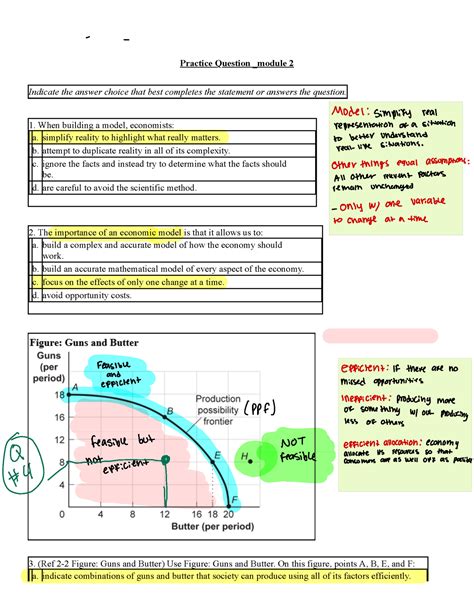 Practice Question _module 2
Indicate the answer choice that best completes the statement or answers the question.
1. When building a model, economists:
a. simplify reality to highlight what really matters.
b. attempt to duplicate reality in all of its complexity.
c. ignore the facts and instead try to determine what the facts should
be.
d. are careful to avoid the scientific method.
Model: Simplify real
representation of a situation
to better understand
real life situations.
Other things equal assumptions:
All other relevant factors
remain unchanged
- Only w/ one variable
to change at a time
2. The importance of an economic model is that it allows us to:
a. build a complex and accurate model of how the economy should
work.
b. build an accurate mathematical model of every aspect of the economy.
c. focus on the effects of only one change at a time.
d. avoid opportunity costs.
Figure: Guns and Butter
Guns
(per
period)
18
16
12
8
4
0
4
8
12
16
18
20
Butter (per period)
A
B
E
F
H
Production
possibility (PPF)
frontier
Feasible
and
efficient
feasible but
not
efficient
NOT
feasible
Q
#4
efficient: If there are no
missed opportunities
Inefficient: producing more
of something w/ out producing
less of others
efficient allocation: economy
allocate its resources so that
consumers are as well off as possible
3. (Ref 2-2 Figure: Guns and Butter) Use Figure: Guns and Butter. On this figure, points A, B, E, and F:
a. indicate combinations of guns and butter that society can produce using all of its factors efficiently.